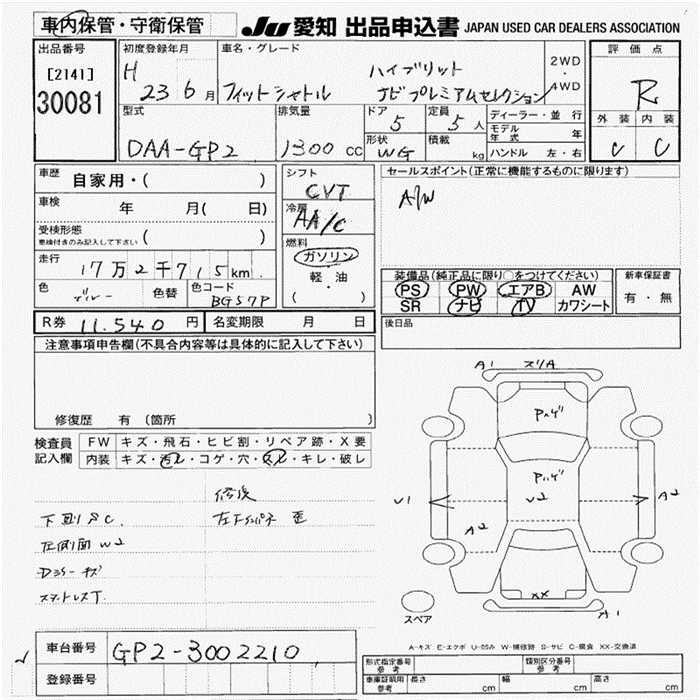 車内保管・守衛保管
JU 愛知 出品申込書 JAPAN USED CAR DEALERS ASSOCIATION
出品番号
[2141]
30081
初度登録年月
H 23 6月
車名・グレード
フィットシャトル
ハイブリット
ナビプレミアムセレクション
2WD
・
4WD
評価点
R
外装 内装
C C
型式
DAA-GP2
排気量
1300 CC
ドア
5
定員
5人
形状
WG
積載
kg
ディーラー・並行
モデル年式 年
ハンドル 左・右
車歴
自家用・( )
車検
年 月( 日)
受検形態
車検付きのみ記入して下さい ( )
走行
17万2千715km
色
ブルー
色替
色コード
BG57P
シフト
CVT
冷房
AA/C
燃料
ガソリン
軽・油
( )
セールスポイント(正常に機能するものに限ります)
A/W
装備品(純正品に限り○をつけてください)
PS PW エアB AW
SR ナビ TV カワシート
新車保証書
有・無
R券 11,540円
名変期限 月 日
後日品
注意事項申告欄(不具合内容等は具体的に記入して下さい)
修復歴 有 (箇所 )
検査員記入欄
FW キズ・飛石・ヒビ割・リペア跡・X要
内装 キズ・汚れ・コゲ・穴・スレ・キレ・破レ
下回りSC.
左側面W2
修復
歪
A1
スリA
U1
U2
A2
A2
XX
A1
スペア
A-キズ E-エクボ U-凹み W-補修跡 S-サビ C-腐食 XX-交換済
車台番号 GP2-3002210
登録番号
型式指定番号 参考
類別区分番号 参考
車庫証明用 参考
長さ cm
幅 cm
高さ cm